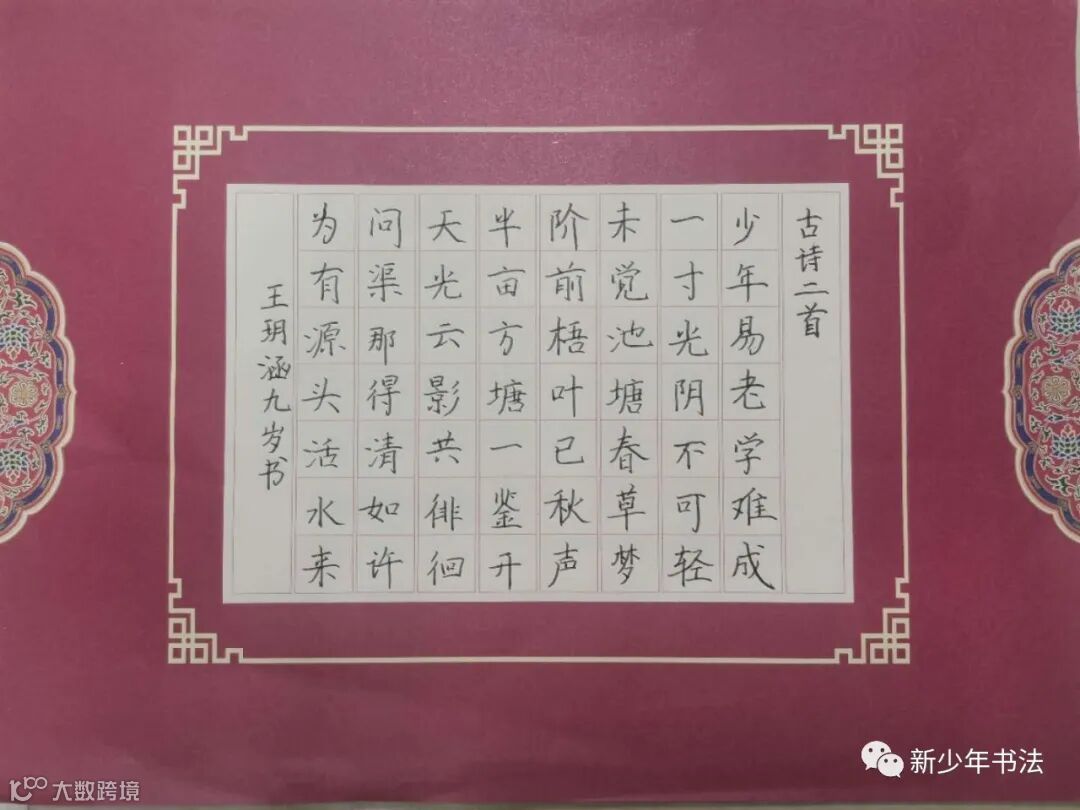 古诗二首
少年易老学难成
一寸光阴不可轻
未觉池塘春草梦
阶前梧叶已秋声
半亩方塘一鉴开
天光云影共徘徊
问渠那得清如许
为有源头活水来
王玥涵九岁书
新少年书法
大数跨境